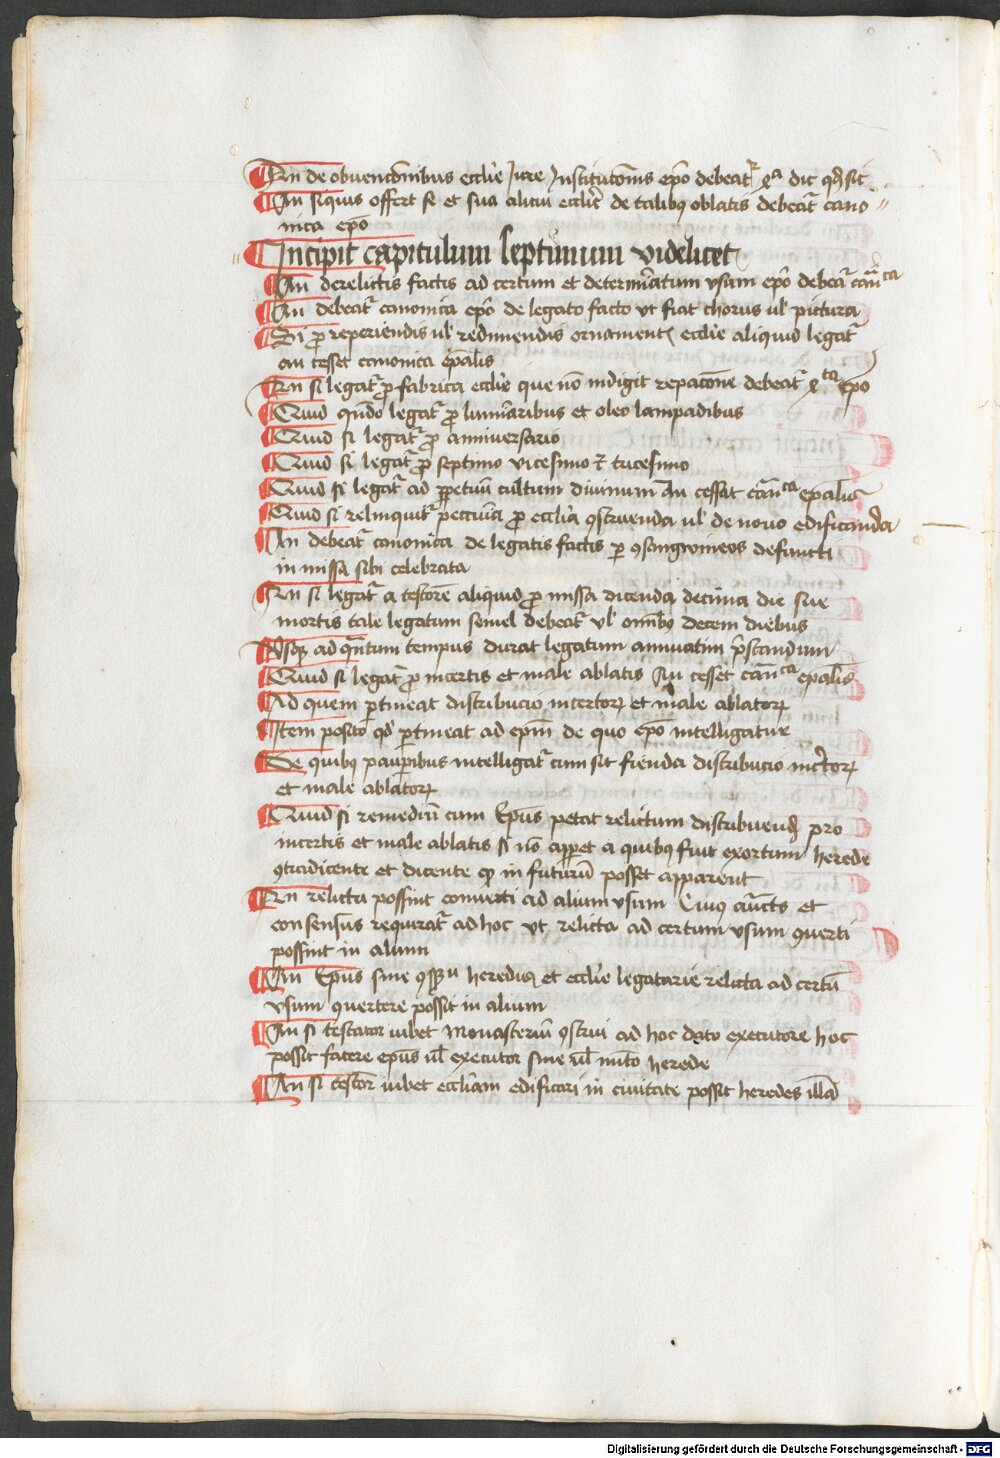 An de obuencionibus ecclie iure Institucionis epo debeatr qta dic qd sic
An siquis offert se et sua alicui ecclie de talibus oblatis debeatr cano//
nica epo
Incipit capitulum septimum videlicet
An derelictis factis ad certum et determinatum vsum epo debeatr canca
An debeatr canonica epo de legato facto vt fiat chorus ul' pictura
Si pro reperiendis ul' redimendis ornamentis ecclie aliquid legatr
an cesset canonica epalis
An si legatr pro fabrica ecclie que non indigit reparacone debeatr qta epo
Quid quando legatr pro luminaribus et oleo lampadibus
Quid si legatr pro anniversario
Quid si legatr pro septimo vicesimo et tricesimo
Quid si legatr ad perpetuum cultum diuinum An cesset canca epalis
Quid si relinquitr peccunia pro ecclia construenda ul' de nouo edificanda
An debeatr canonica de legatis factis per consangwineos defuncti
in missa sibi celebrata
An si legatr a testatore aliquid pro missa dicenda decima die sue
mortis tale legatum semel debeatr vl' omnibus decem diebus
Vsque ad quantum tempus durat legatum annuatim prestandum
Quid si legatr pro incertis et male ablatis An cesset canca epalis
Ad quem pertineat distribucio incertorum et male ablatorum
Item posito quod pertineat ad epm de quo epo intelligatur
De quibus pauperibus intelligatr cum sit fienda distribucio incertorum
et male ablatorum
Quid si remedium cum Epus petat relictum distribuendum pro
incertis et male ablatis si non apparet a quibus fuit exortum herede
contradicente et dicente quod in futurum posset apparere
An relicta possint conuerti ad alium vsum Cuius et
consensus requiratr ad hoc vt relicta ad certum vsum conuerti
possint in alium
An Epus sine consensu heredum et ecclie legatarie relicta ad certum
vsum conuertere possit in alium
An si testator iubet Monasterium construi ad hoc dato executore hoc
possit facere epus vl' executor sine herede
An si testator iubet eccliam edificari in ciuitate possit heredes illam
Digitalisierung gefördert durch die Deutsche Forschungsgemeinschaft - DFG